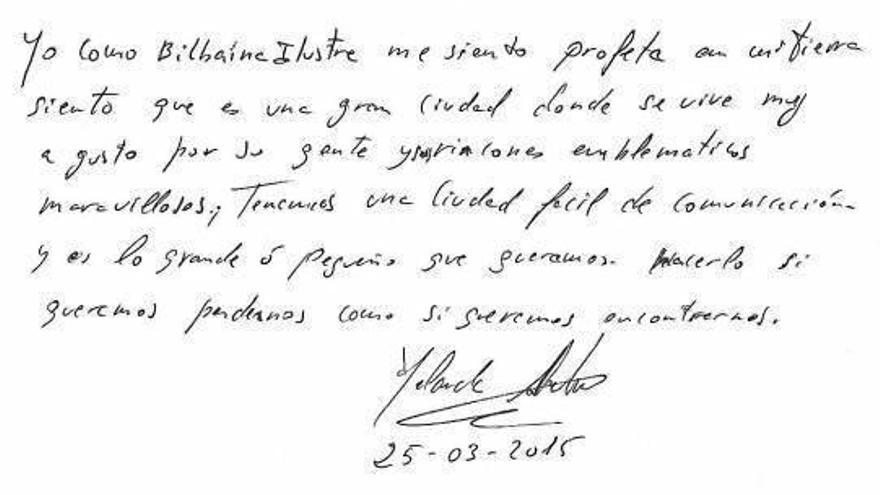 Yo como Bilbaína Ilustre me siento profeta en mi tierra
siento que es una gran Ciudad donde se vive muy
a gusto por su gente y sus rincones emblematicos
maravillosos., Tenemos una Ciudad facil de comunicación
y es lo grande ó pequeño que queramos. Hacerlo si
queremos perdernos como si queremos encontrarnos.
Yolanda
25-03-2015